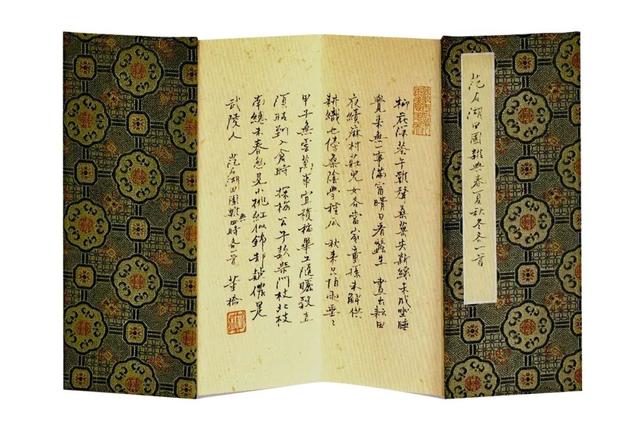 范石湖田園雜興春夏秋冬各一首
柳花深巷午雞聲桑葉尖新綠未成坐睡
覺來無一事滿窗晴日看蠶生 晝出耘田
夜績麻村莊兒女各當家童孫未解供
耕織也傍桑陰學種瓜 秋來只怕雨垂々
甲子無雲萬事宜穫稻畢工隨曬穀直
須晴到入倉時 探梅公子款柴門枝北枝
南總未春忽見小桃紅似錦卻疑儂是
武陵人 范石湖田園雜興四時各一首 董橋